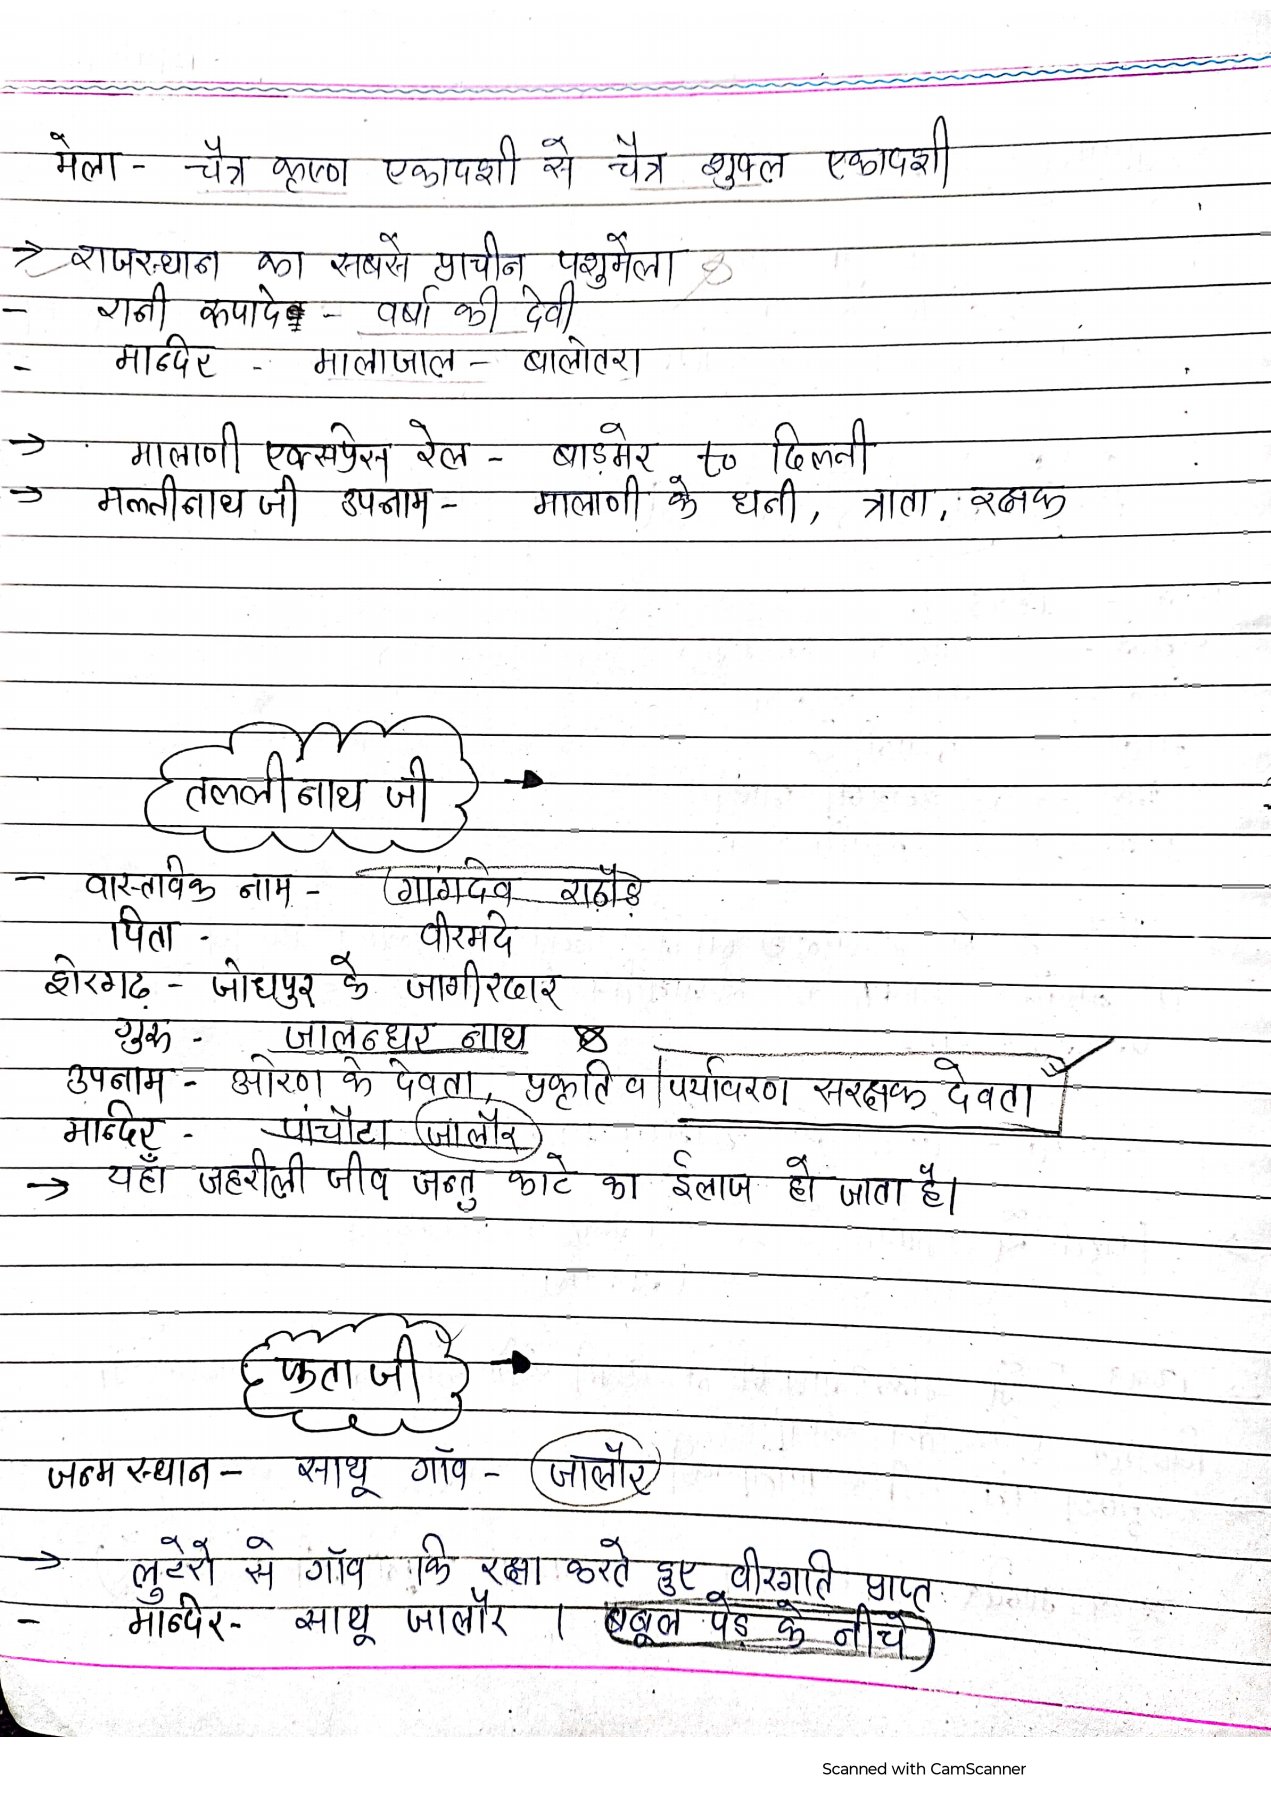 मेला - चैत्र कृष्ण एकादशी से चैत्र शुक्ल एकादशी
→ राजस्थान का सबसे प्राचीन पशुमेला
- रानी रूपादे - वर्षा की देवी
- मान्दिर - मालाजाल - बालोतरा
→ मालाणी एक्सप्रेस रेल - बाड़मेर to दिल्ली
→ मल्लीनाथ जी उपनाम - मालाणी के धनी, त्राता, रक्षक
तल्लीनाथ जी →
- वास्तविक नाम - गांगदेव राठौड़
पिता - वीरमदे
शेरगढ़ - जोधपुर के जागीरदार
गुरू - जालन्धर नाथ
उपनाम - ओरण के देवता, प्रकृति व पर्यावरण सरक्षक देवता
मान्दिर - पांचौटा जालौर
→ यहाँ जहरीली जीव जन्तु काटे का ईलाज हो जाता है।
फत्ता जी →
जन्म स्थान - साथू गॉव - जालौर
→ लुटेरो से गॉव कि रक्षा करते हुए वीरगति प्राप्त
- मान्दिर - साथू जालौर । बबूल पेड़ के नीचे
Scanned with CamScanner